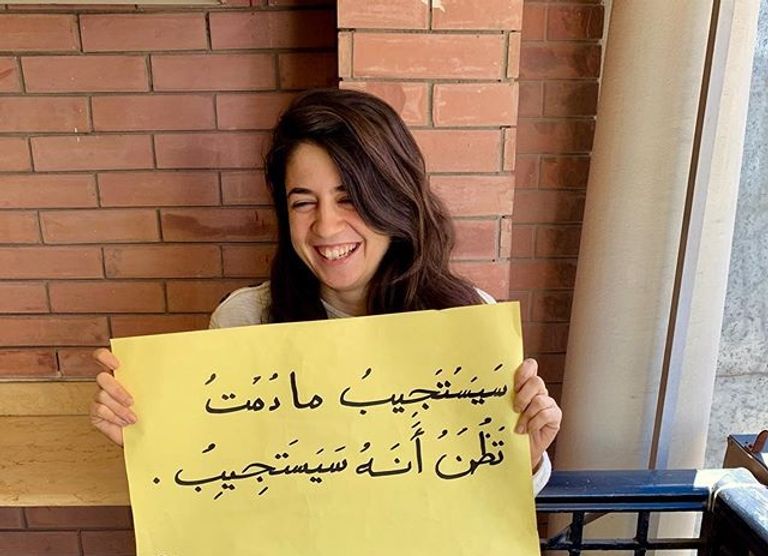 سَيَسْتَجِيبُ ما دُمْتُ
تَظُنَّ أَنَهُ سَيَستَجِيبُ .